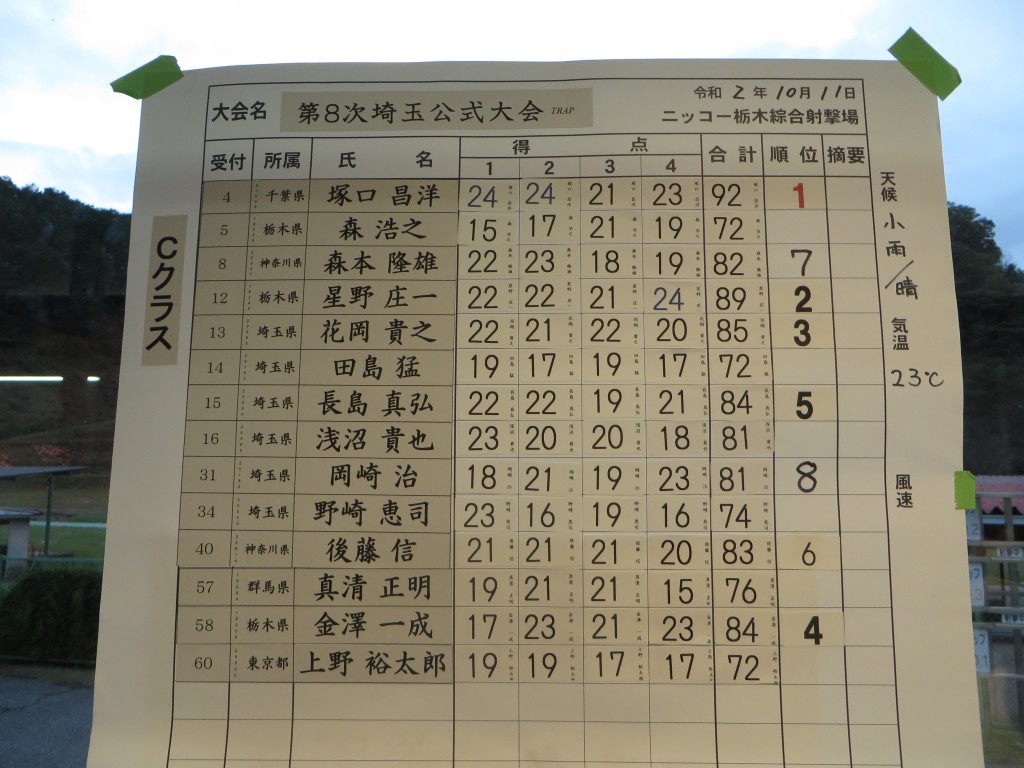 令和 2 年 10 月 11 日
大会名 第8次埼玉公式大会 TRAP ニッコー栃木綜合射撃場
受付 所属 氏 名 得 点 合計 順位 摘要
1 2 3 4
4 千葉県 塚口 昌洋 24 24 21 23 92 1
5 栃木県 森 浩之 15 17 21 19 72
8 神奈川県 森本 隆雄 22 23 18 19 82 7
12 栃木県 星野 庄一 22 22 21 24 89 2
13 埼玉県 花岡 貴之 22 21 22 20 85 3
14 埼玉県 田島 猛 19 17 19 17 72
15 埼玉県 長島 真弘 22 22 19 21 84 5
16 埼玉県 浅沼 貴也 23 20 20 18 81
31 埼玉県 岡崎 治 18 21 19 23 81 8
34 埼玉県 野崎 恵司 23 16 19 16 74
40 神奈川県 後藤 信 21 21 21 20 83 6
57 群馬県 真清 正明 19 21 21 15 76
58 栃木県 金澤 一成 17 23 21 23 84 4
60 東京都 上野 裕太郎 19 19 17 17 72
Cクラス
天候 小雨/晴
気温 23℃
風速